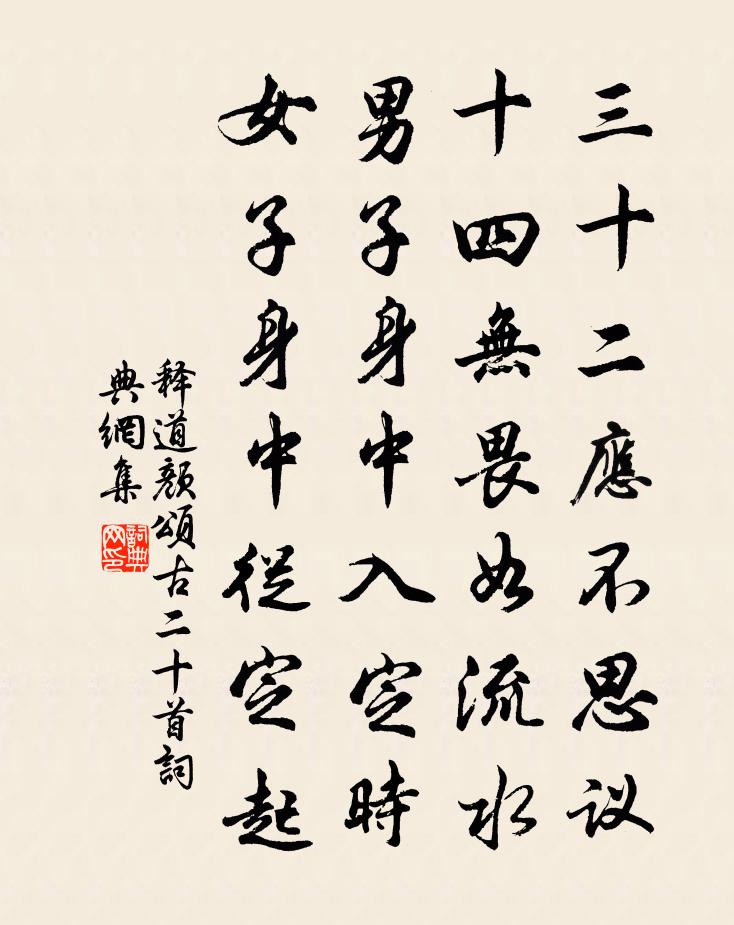 三十二應不思议
十四無畏如流水
男子身中入定時
女子身中從定起
释道颜頌古二十首詞
典網集
詞典
网印